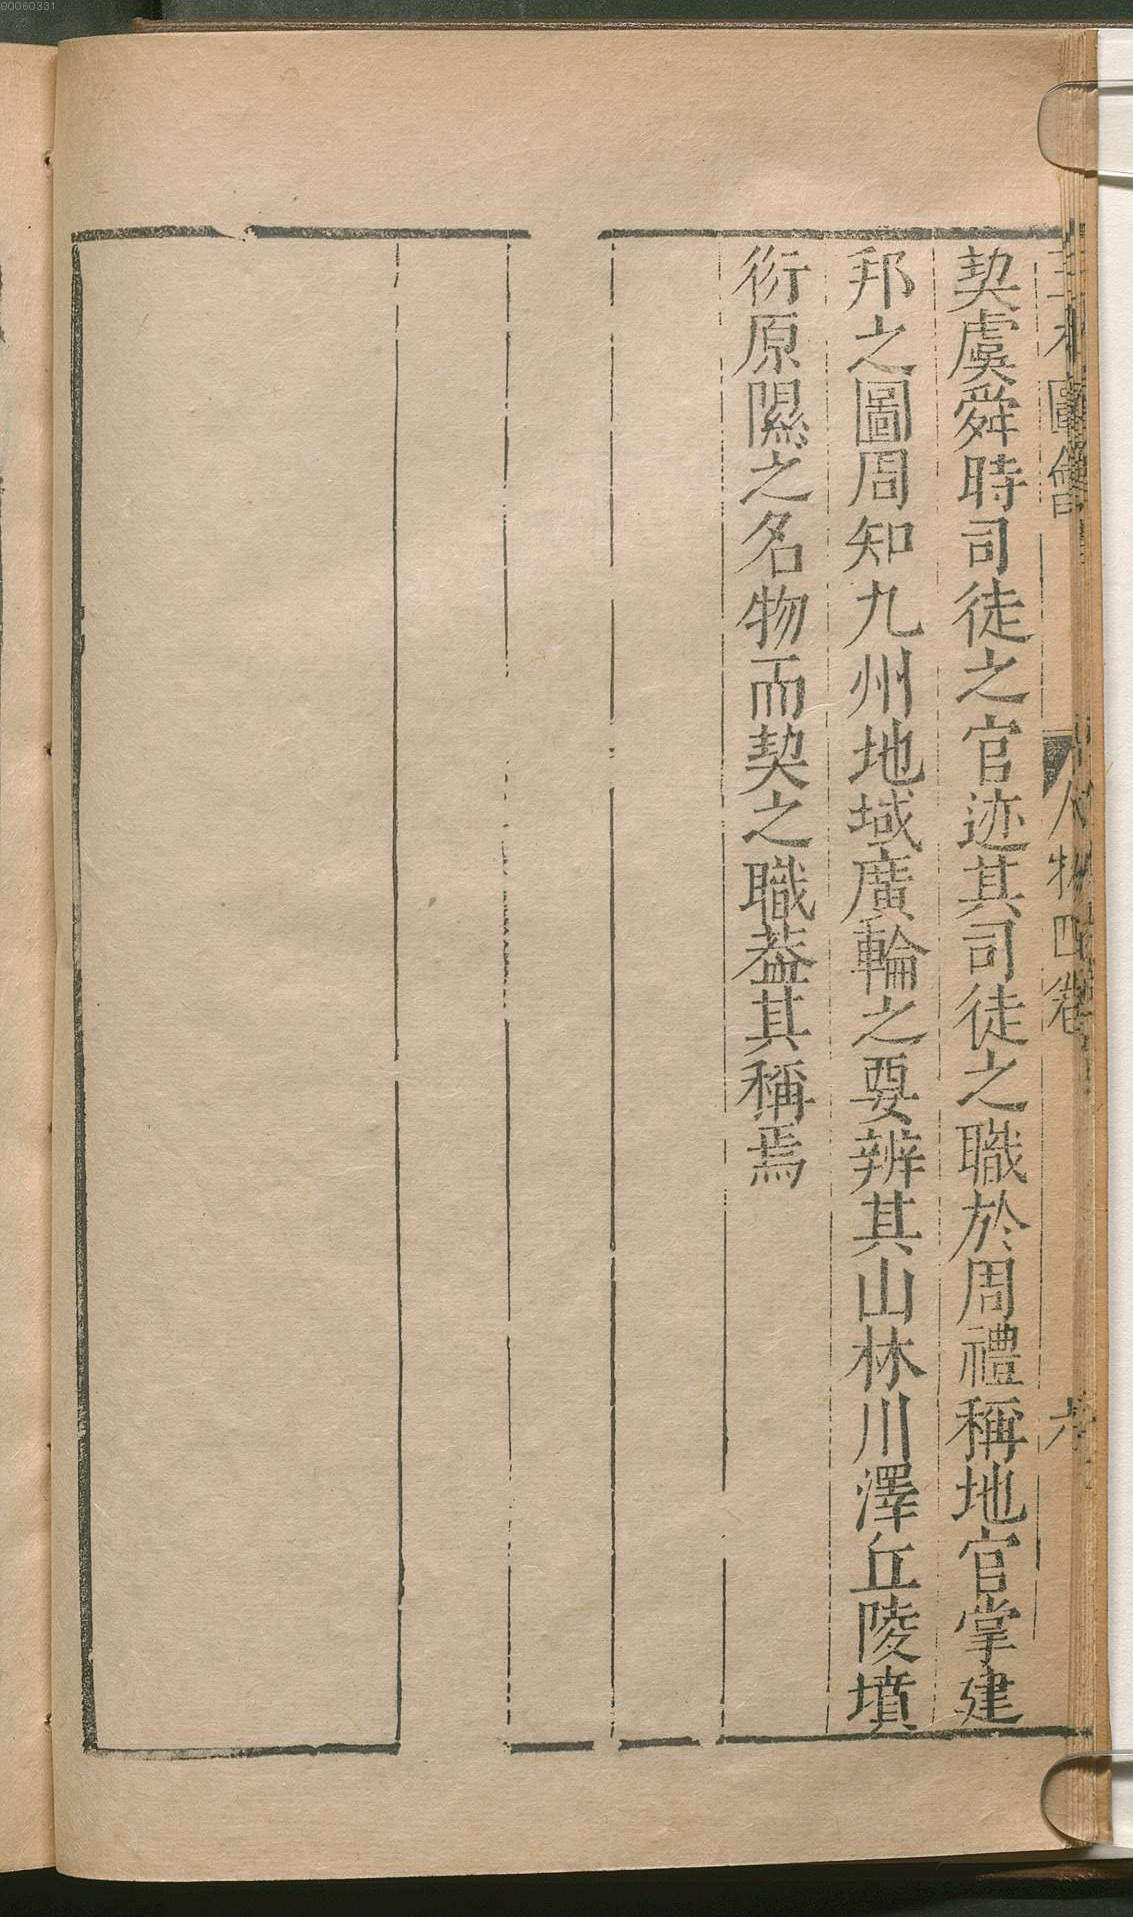 圖會 人物四卷
契虞舜時司徒之官迹其司徒之職於周禮稱地官掌建
邦之圖周知九州地域廣輪之要辨其山林川澤丘陵墳
衍原隰之名物而契之職葢其稱焉
00060331